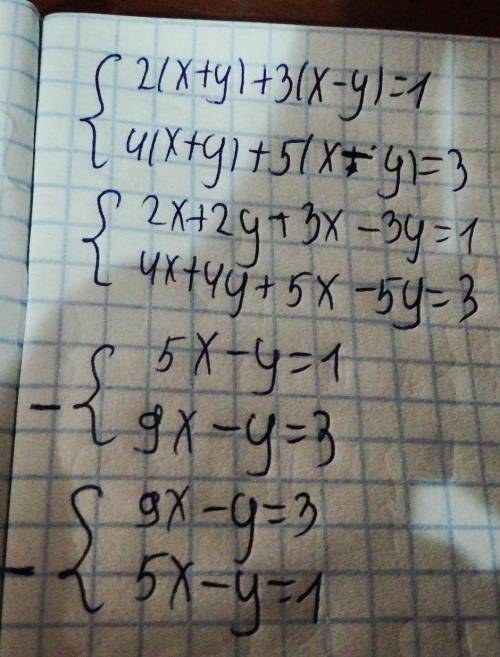 2(x+y)+3(x-y)=1
4(x+y)+5(x-y)=3
2x+2y+3x-3y=1
4x+4y+5x-5y=3
5x-y=1
- 9x-y=3
9x-y=3
- 5x-y=1